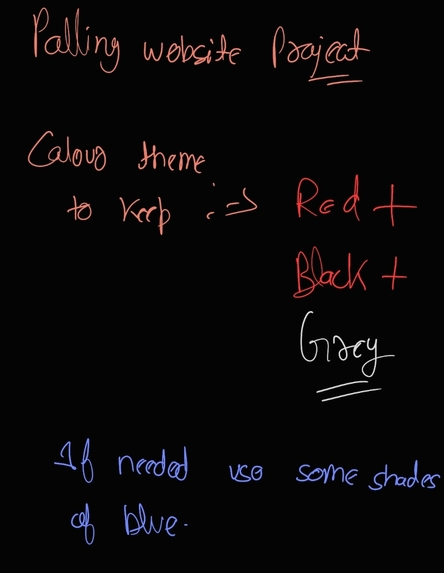 Palling website Project
Colour theme
to keep :-> Red +
Black +
Grey
If needed use some shades
of blue.